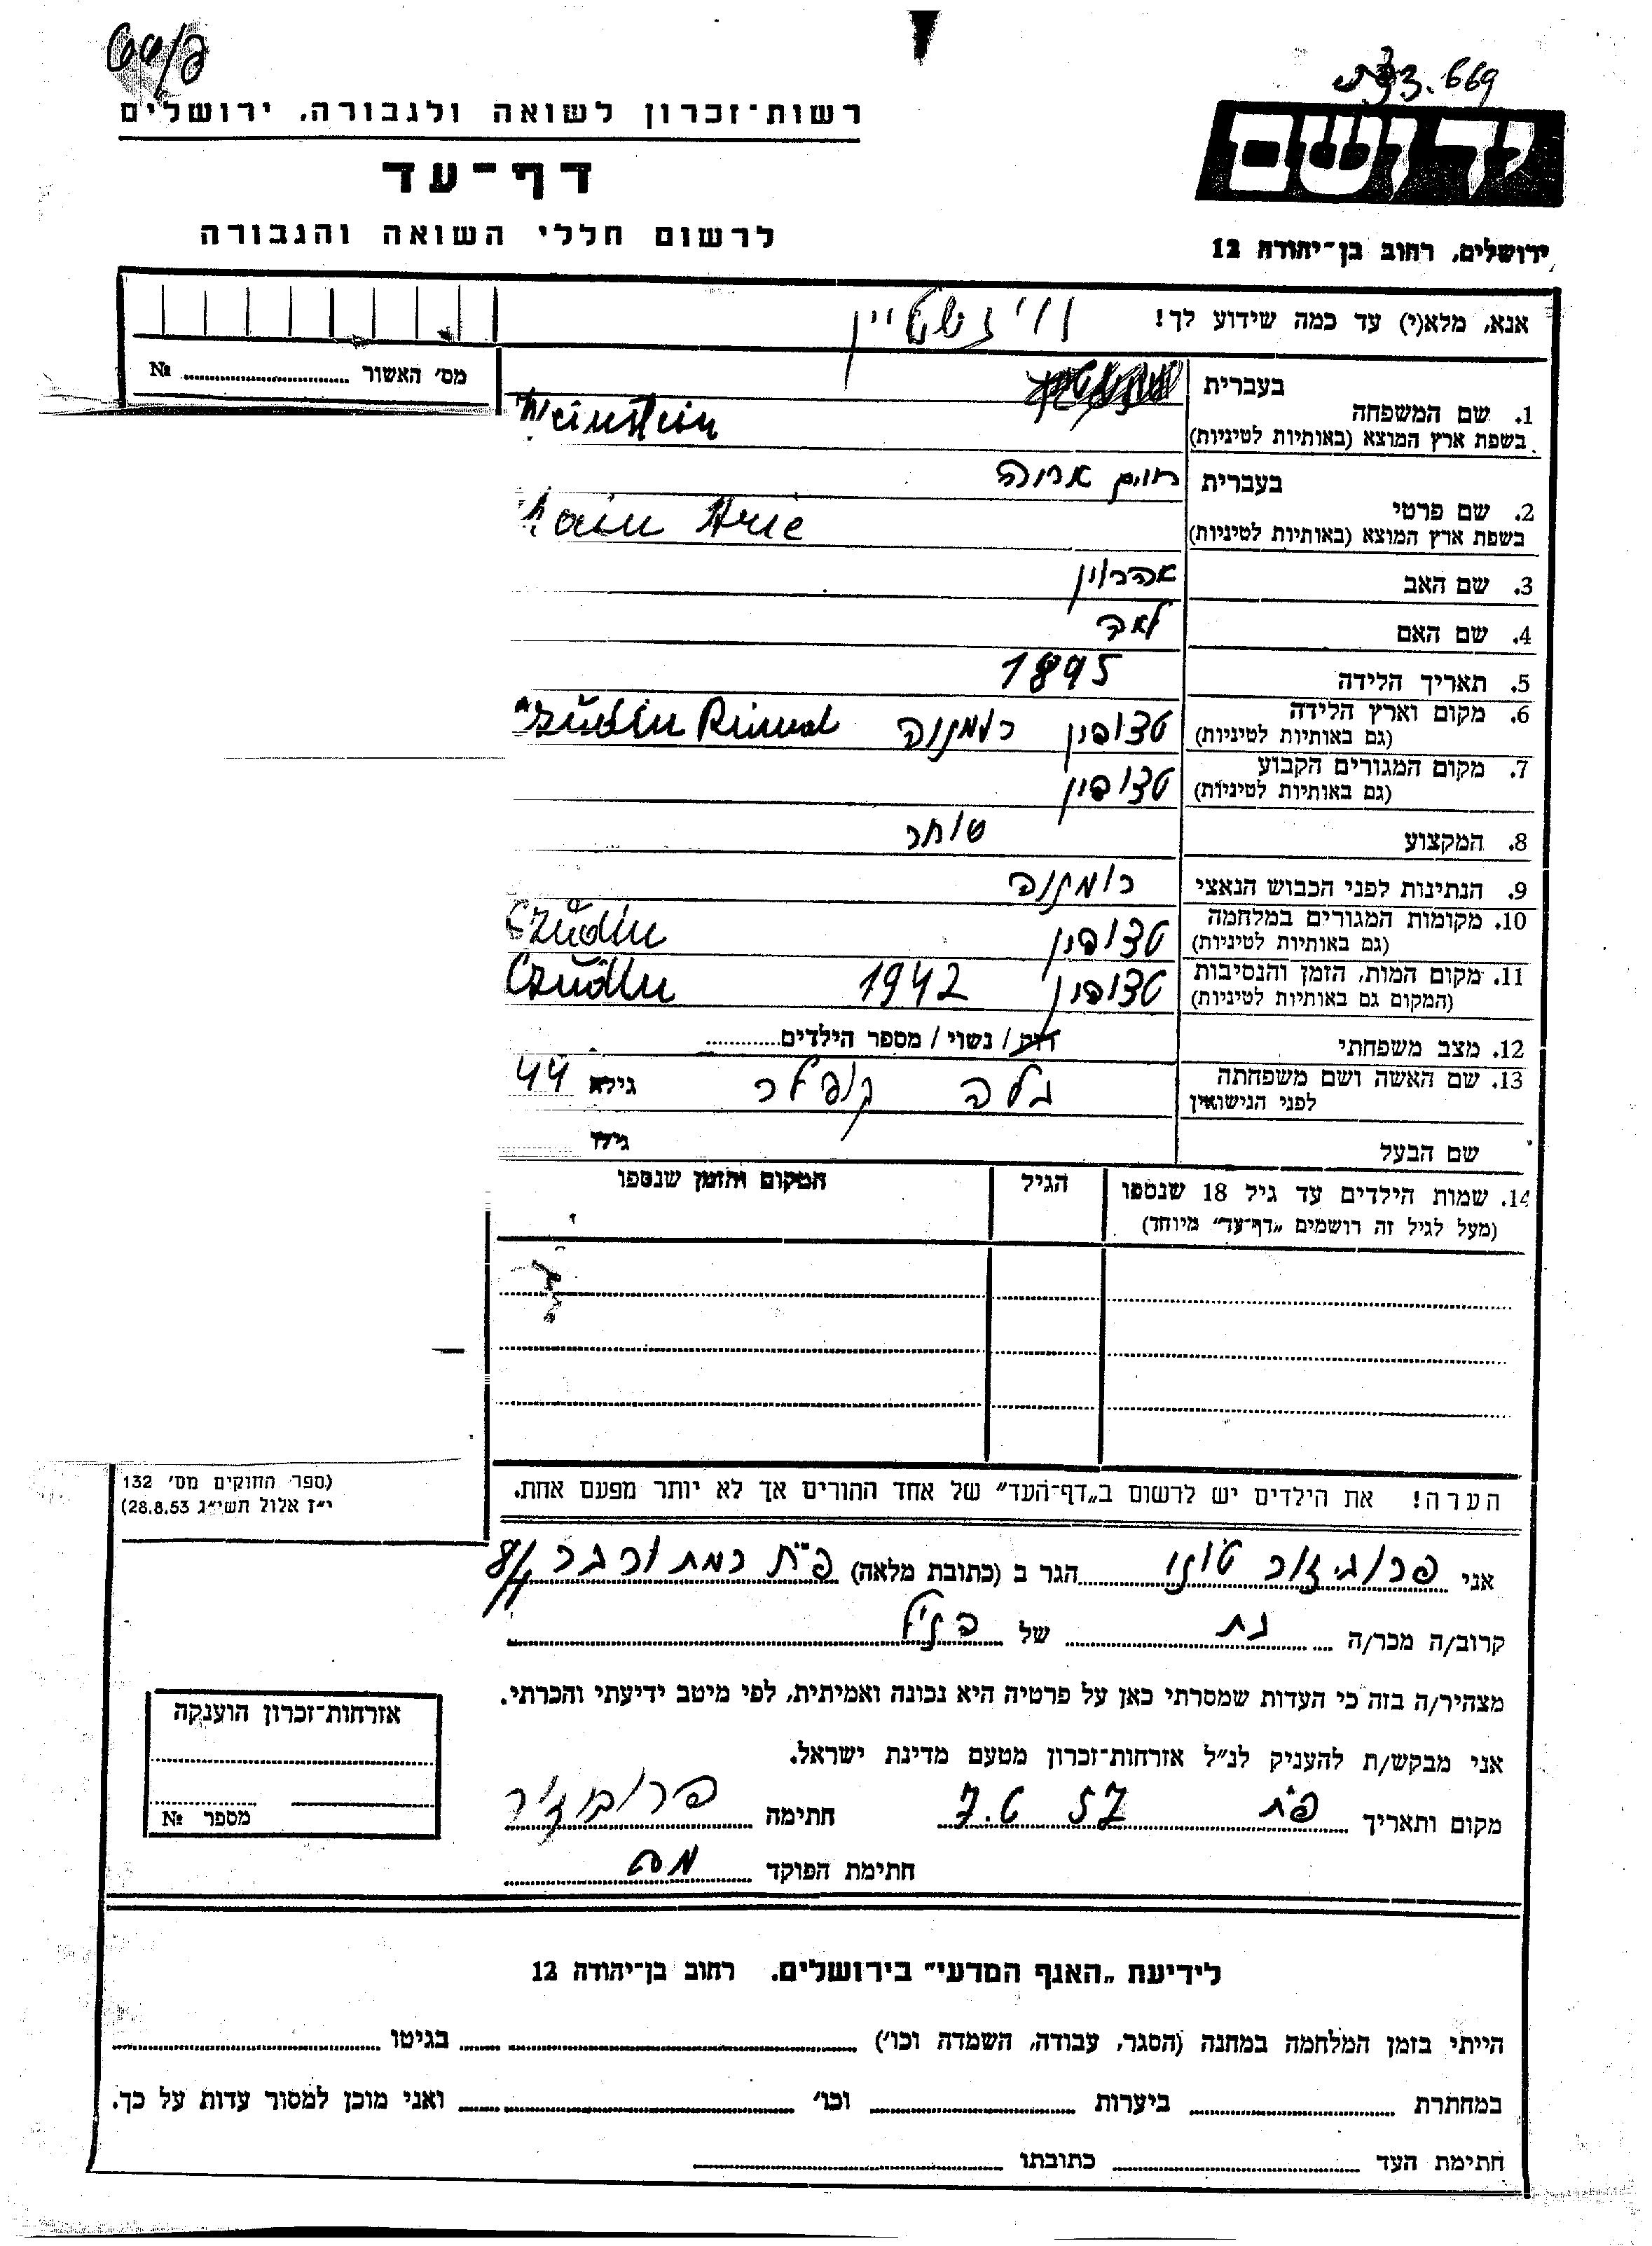 669
רשות־זכרון לשואה ולגבורה, ירושלים
יד ושם
דף־עד
לרשום חללי השואה והגבורה
ירושלים, רחוב בן־יהודה 12
אנא, מלא(י) עד כמה שידוע לך!
וויינשטיין
מס׳ האשור № 
1. שם המשפחה
בעברית
בשפת ארץ המוצא (באותיות לטיניות) Weinstein
2. שם פרטי
בעברית חיים אריה
בשפת ארץ המוצא (באותיות לטיניות) Haim Arie
3. שם האב אהרון
4. שם האם לאה
5. תאריך הלידה 1895
6. מקום וארץ הלידה
(גם באותיות לטיניות) טצודין רומניה
7. מקום המגורים הקבוע
(גם באותיות לטיניות) טצודין
8. המקצוע סוחר
9. הנתינות לפני הכבוש הנאצי רומניה
10. מקומות המגורים במלחמה
(גם באותיות לטיניות) טצודין Czudin
11. מקום המות, הזמן והנסיבות
(המקום גם באותיות לטיניות) טצודין 1942 Czudin
12. מצב משפחתי רוק / נשוי / מספר הילדים
13. שם האשה ושם משפחתה
לפני הנישואין גילה 44
שם הבעל גילו
14. שמות הילדים עד גיל 18 שנספו הגיל המקום והזמן שנספו
(מעל לגיל זה רושמים „דף־עד״ מיוחד)
(ספר החוקים מס׳ 132
י״ז אלול תשי״ג 28.8.53)
הערה! את הילדים יש לרשום ב„דף־העד״ של אחד ההורים אך לא יותר מפעם אחת.
אני הגר ב (כתובת מלאה) פ״ת
קרוב/ה מכר/ה בת של הנ״ל
מצהיר/ה בזה כי העדות שמסרתי כאן על פרטיה היא נכונה ואמיתית, לפי מיטב ידיעתי והכרתי.
אני מבקש/ת להעניק לנ״ל אזרחות־זכרון מטעם מדינת ישראל.
מקום ותאריך פ״ת 7.6.57 חתימה
חתימת הפוקד
אזרחות־זכרון הוענקה
מספר №
לידיעת „האגף המדעי״ בירושלים. רחוב בן־יהודה 12
הייתי בזמן המלחמה במחנה (הסגר, עבודה, השמדה וכו׳) בגיטו
במחתרת ביערות וכו׳ ואני מוכן למסור עדות על כך.
חתימת העד כתובתו